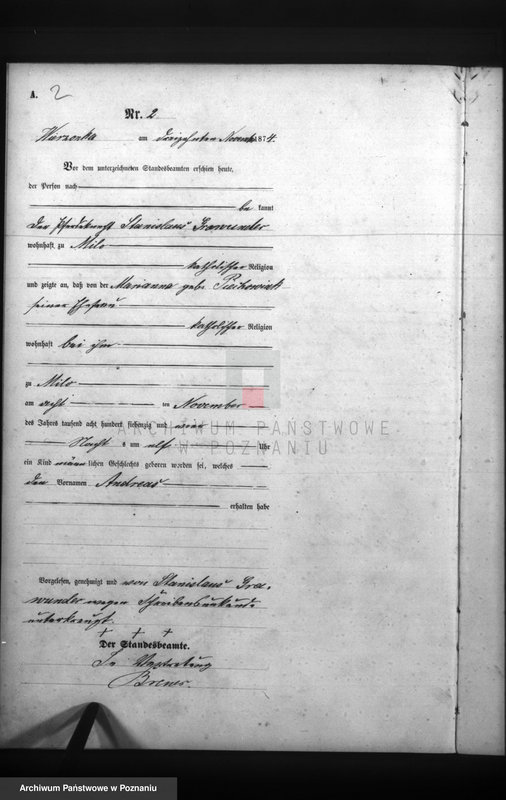 A. 2
Nr. 2
am dreizehnten November 1874.
Vor dem unterzeichneten Standesbeamten erschien heute,
der Person nach
be kannt
der Pferdeknecht Stanislaus Grawunder
wohnhaft zu Milo
katholischer Religion
und zeigte an, daß von der Marianna geb.
seiner Ehefrau
katholischer Religion
wohnhaft bei ihm
zu Milo
am acht ten November
des Jahres tausend acht hundert siebenzig und vier
Nachts um elf Uhr
ein Kind männ lichen Geschlechts geboren worden sei, welches
den Vornamen Andreas
erhalten habe
Vorgelesen, genehmigt und von Stanislaus Gra-
wunder wegen Schreibensunkunde
unterkreuzt.
+ + +
Der Standesbeamte.
In Vertretung
ARCHIWUM PAŃSTWOWE
W POZNANIU
Archiwum Państwowe w Poznaniu